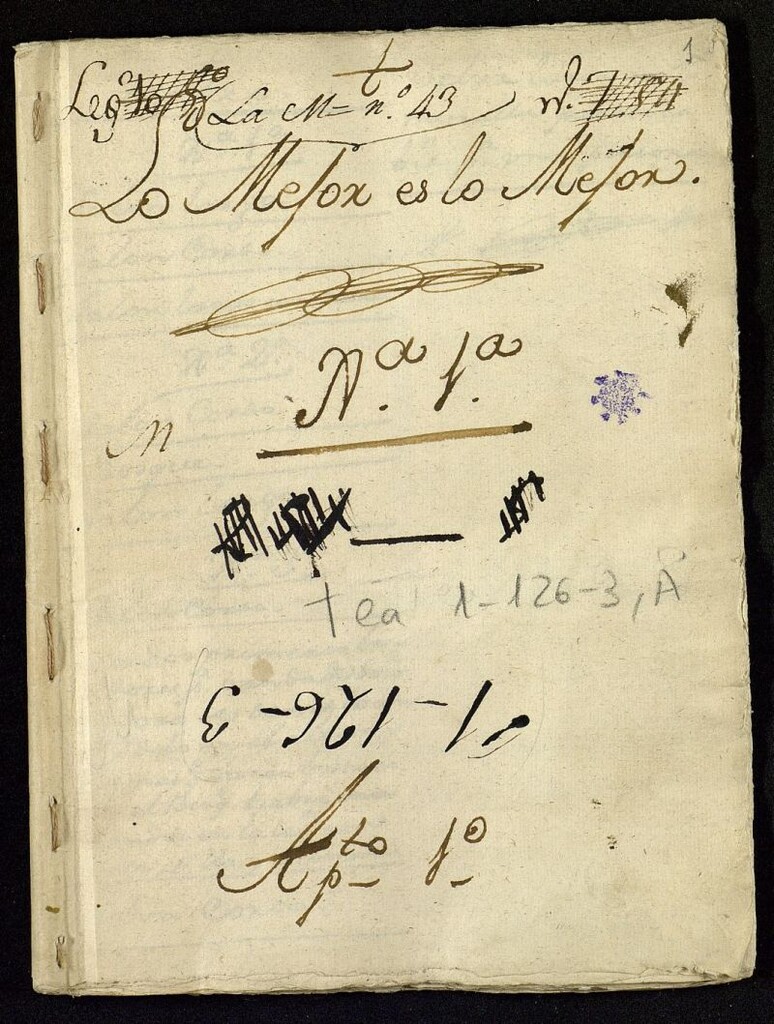 1
Leg.º La M= n.º 43 n.º 7
Lo Mejor es lo Mejor.
N.ª 1.ª
M
tea 1-126-3, A
1-126-3
Ap.to 1.º